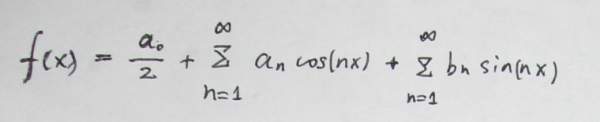 f(x) = a₀/2 + ∞Σn=1 aₙ cos(nx) + ∞Σn=1 bₙ sin(nx)